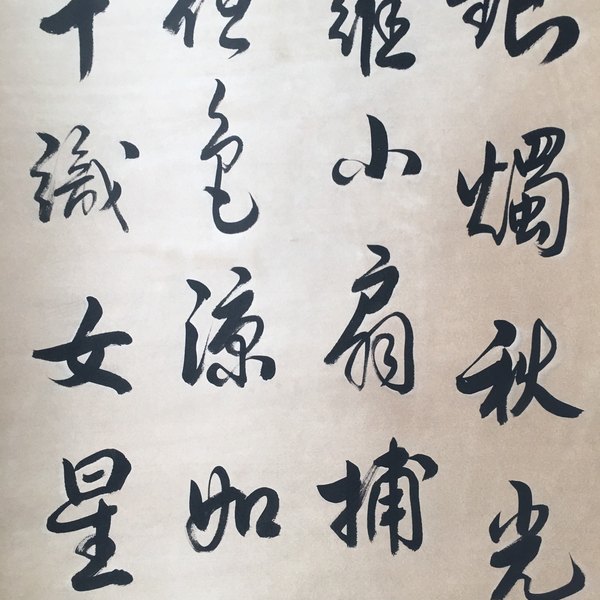 銀燭秋光
羅小扇捕
夜色涼如
牛織女星